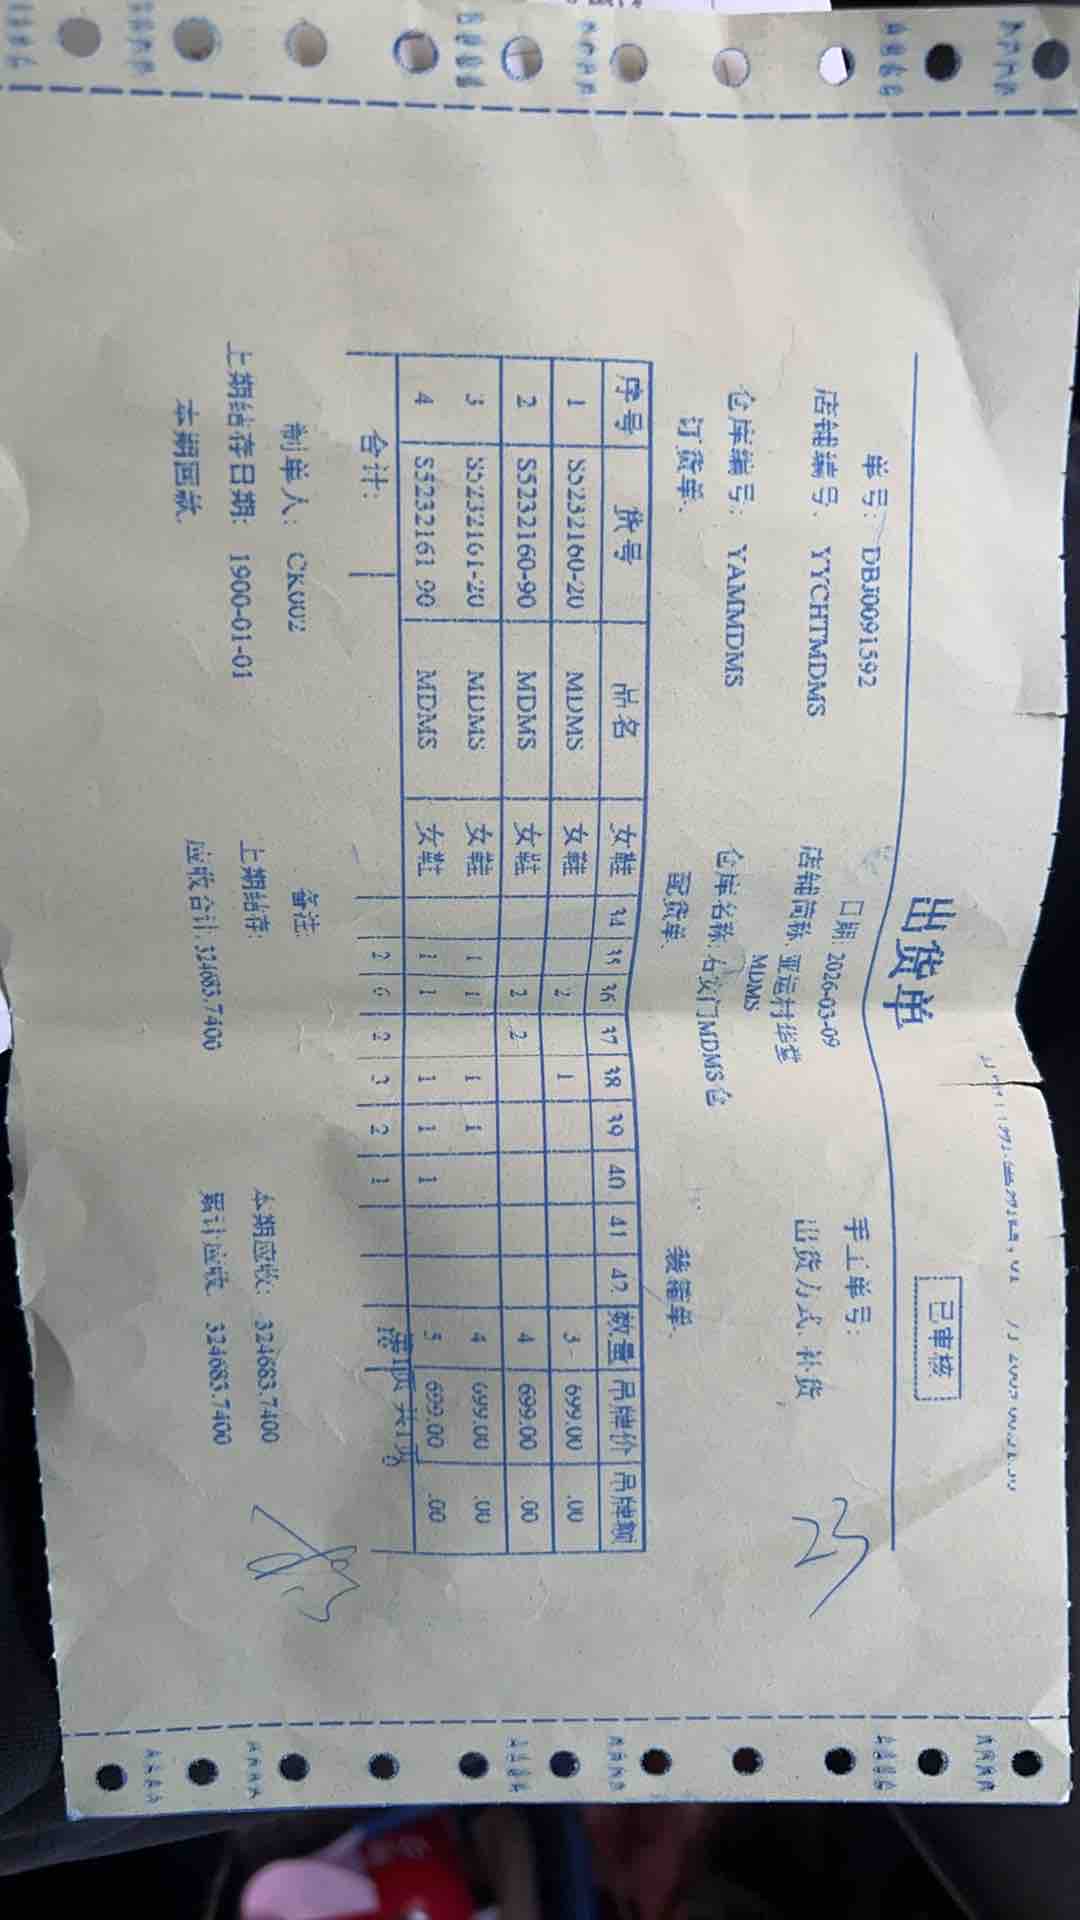 出货单
已审核
单号: DBJ0091592 日期: 2026-03-09 手工单号:
店铺编号: YYCHTMDMS 店铺简称: 亚运村华堂MDMS 出货方式: 补货
23
仓库编号: YAMMDMS 仓库名称: 右安门MDMS仓
订货单: 配货单: 装箱单:
序号 货号 品名 女鞋 34 35 36 37 38 39 40 41 42 数量 吊牌价 吊牌额
1 S5232160-20 MDMS 女鞋 2 1 3 699.00 .00
2 S5232160-90 MDMS 女鞋 2 2 4 699.00 .00
3 S5232161-20 MDMS 女鞋 1 1 1 1 4 699.00 .00
4 S5232161-90 MDMS 女鞋 1 1 1 1 1 5 699.00 .00
合计: 2 6 2 3 2 1
制单人: CK002 备注:
上期结存日期: 1900-01-01 上期结存: 本期应收: 324683.7400
本期回款: 应收合计: 324683.7400 累计应收: 324683.7400